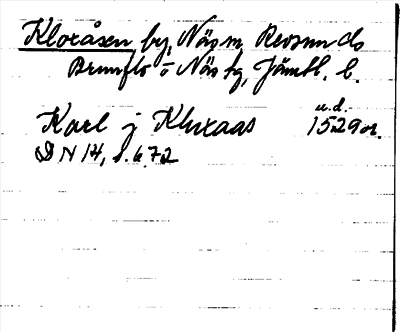 Kloxåsen by, Näs sn, Revsunds
Brunflo o Näs tg, Jämtl. l.
u.d.
Karl j Kluxaas 1529 or.
DN 14, s. 672